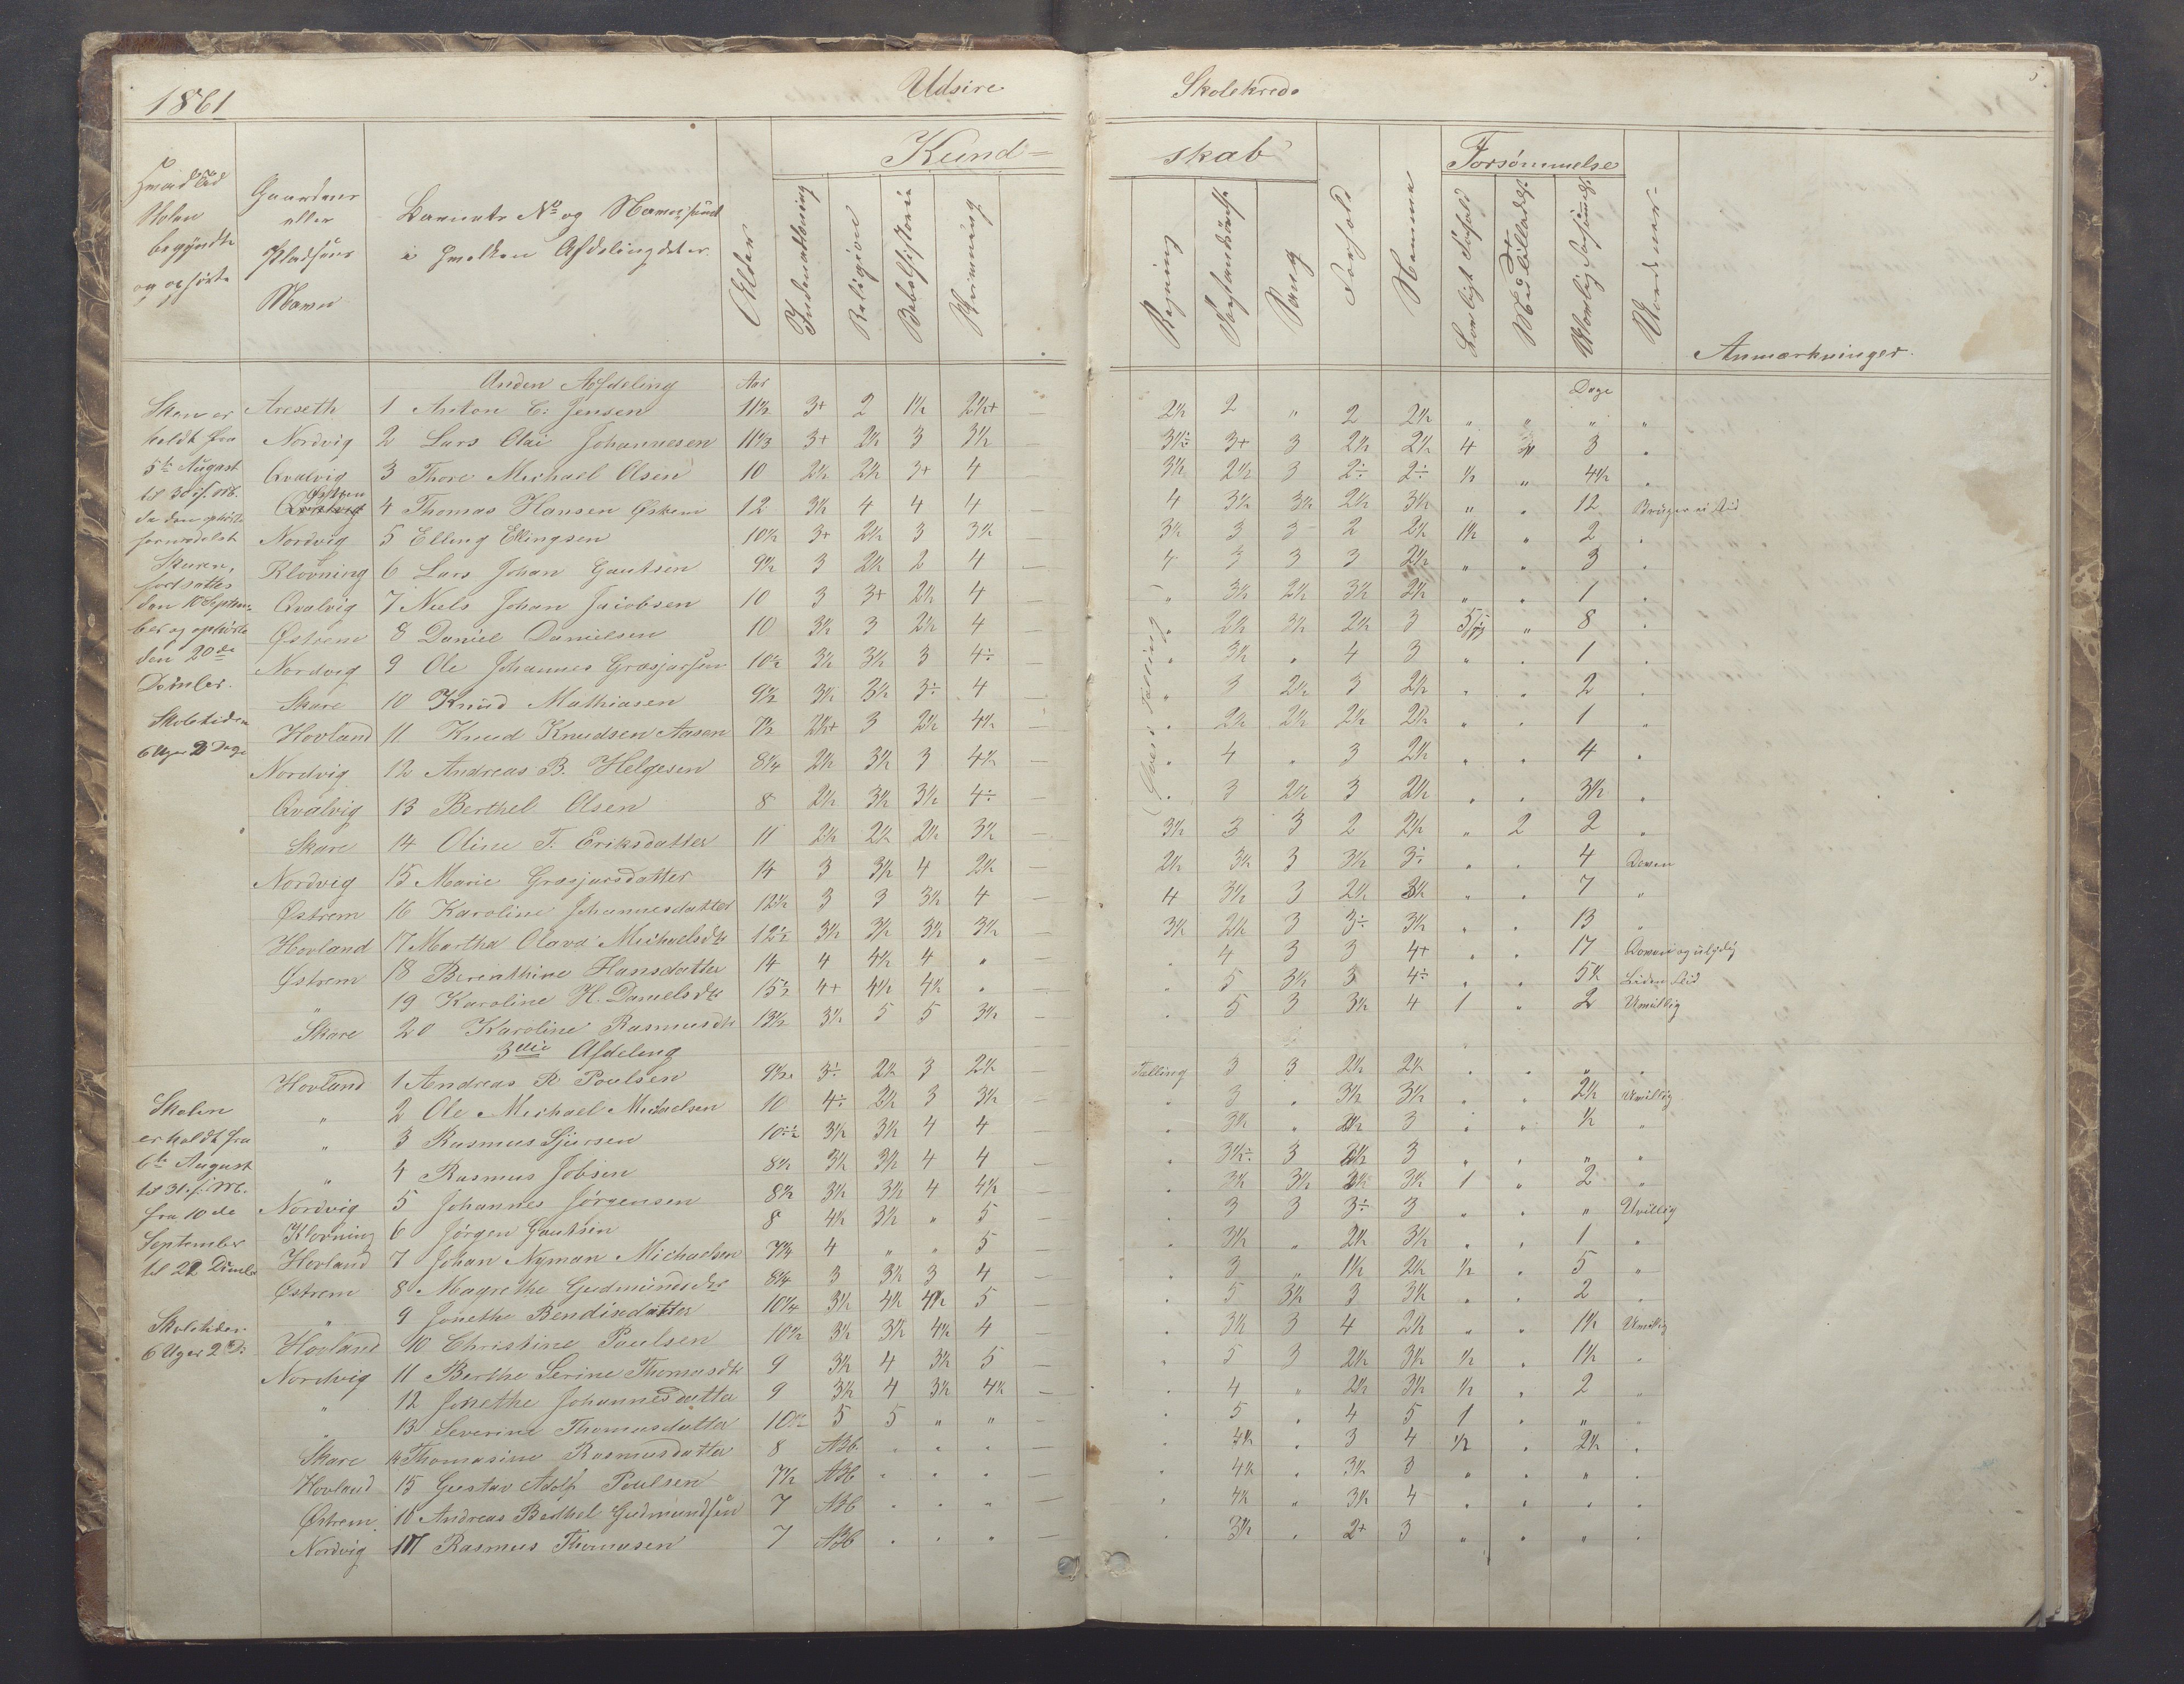 1861 Udsire Skolekreds 5
Kund= skab Forsömmelse
Hvad Tid Skolen begyndte og ophörte
Gaardens eller Pladsens Navn
Barnets No og Navn, samt i hvilken Afdeling det er
Alder
Indenadlæsning
Religion
Bibelhistorie
Skrivning
Regning
Forstandsövelse
Sang
Forhold
Nemme
Lovligt Forfald
Med Tilladelse
Ulovlig Forsömmelse
Udeenær-
Anmærkninger.
Anden Afdeling Aar Dage
Areseth 1 Anton C: Jensen 11½ 3+ 2 1½ 2½+ — 2½ 2 " 2 2½ " " " "
Nordvig 2 Lars Olai Johannesen 11½ 3+ 2½ 3 3½ — 3½÷ 3+ 3 2½ 2½ 4 " 3 "
Qvalvig 3 Thore Michael Olsen 10 2½ 2½ 3+ 4 — 3½ 2½ 3 2÷ 2÷ ½ " 4½ "
Östrem 4 Thomas Hansen Östrem 12 3½ 4 4 4 — 4 3½ 3½ 2½ 3½ " " 12 Bruger ei Flid
Nordvig 5 Elling Ellingsen 10½ 3+ 2½ 3 3½ — 3½ 3 3 2 2½ 1½ " 2 "
Klovning 6 Lars Johan Gautsen 9½ 3 2½ 2 4 — 4 3 3 3 2½ " " 3 "
Qvalvig 7 Niels Johan Jacobsen 10 3 3+ 2½ 4 — " 3½ 2½ 3½ 2½ " " 1 "
Östrem 8 Daniel Danielsen 10 3½ 3 2½ 4 — " 2½ 3½ 2½ 3 " 8 "
Nordvig 9 Ole Johannes Græsjarsen 10½ 3½ 3½ 3 4÷ — " 3½ " 4 3 " " 1 "
Skare 10 Knud Mathiasen 9½ 3½ 3½ 3÷ 4 — " 3 2½ 3 2½ " " 2 "
Hovland 11 Knud Knudsen Aasen 7½ 2½+ 3 2½ 4½ — " 2½ 2½ 2½ 2½ " " 1 "
Nordvig 12 Andreas B. Helgesen 8¼ 2½ 3½ 3 4½ — " 4 " 3 2½ " " 4 "
Qvalvig 13 Berthel Olsen 8 2½ 3½ 3½ 4÷ — " 3 2½ 3 2½ " " 3½ "
Skare 14 Oline T. Eriksdatter 11 2½ 2½ 2½ 3½ — 3½ 3 3 2 2½ " 2 2 "
Nordvig 15 Marie Græsjarsdatter 14 3 3½ 4 2½ — 2½ 3½ 3 3½ 3÷ " " 4 Doven
Östrem 16 Karoline Johannesdatter 12½ 3 3 3½ 4 — 4 3½ 3 2½ 3½ " " 7 "
Hovland 17 Martha Olava Michaelsdtr 12½ 3½ 3½ 3½ 3½ — 3½ 2½ 3 3÷ 3½ " " 13 "
Östrem 18 Berenthine Hansdatter 14 4 4½ 4 " — " 4 3 3 4+ " " 17 Doven og ulydig
" 19 Karoline H. Danielsdtr 15½ 4+ 4½ 4½ " — " 5 3½ 3 4÷ " " 5½ Liden Flid
Skare 20 Karoline Rasmusdtr 13½ 3½ 5 5 3½ — " 5 3 3½ 4 1 " 2 Uvillig
3die Afdeling
Hovland 1 Andreas R Poulsen 9½ 3÷ 2½ 3 2½ Tælling 3 3 2½ 2½ " " " "
" 2 Ole Michael Michaelsen 10 4÷ 2½ 3 3½ — " 3 " 3½ 3½ " " 2½ Uvillig
" 3 Rasmus Sjursen 3½ 3½ 4 4 — " 3½ " 2½ 3 " " ½ "
" 4 Rasmus Jobsen 8½ 3½ 3½ 4 4 — " 3½÷ 3 2½ 3 " " " "
Nordvig 5 Johannes Jörgensen 8½ 3½ 3½ 4 4½ — " 3½ 3½ 2½ 3½ 1 " 2 "
Klovning 6 Jörgen Gautsen 8 4½ 3½ " 5 — " 3 3 3÷ 3 " " " Uvillig
Hovland 7 Johan Nyman Michaelsen 7¾ 4 " " 5 — " 3½ " 2½ 3½ " " 1 "
Östrem 8 Magrethe Gudmundsdtr 8¼ 3 3½ 3 4 — " 3 " 1½ 2½ ½ " 5 "
" 9 Jonethe Bendixdatter 10¼ 3½ 4½ 4½ 5 — " 5 3½ 3 3½ " " 2 "
Hovland 10 Christine Poulsen 10½ 3½ 3½ 4½ 4 — " 3½ 3 4 2½ " " 1½ Uvillig
Nordvig 11 Berthe Serine Thomasdtr 9 3½ 4 3½ 5 — " 5 3 2½ 3½ ½ " 1½ "
" 12 Jonethe Johannesdatter 9 3½ 4 3½ 4½ — " 4 " 2½ 3½ ½ " 2 "
" 13 Severine Thomasdatter 10½ 5 5 " " — " 5 " 4 5 1 " " "
Skare 14 Thomasine Rasmusdatter 8 Abc " " " — " 4½ " 3 4 ½ " 2½ "
Hovland 15 Gustav Adolf Poulsen 7½ Abc " " " — " 4½ " 3½ 3 " " " "
Östrem 16 Andreas Bethel Gudmundsen 7 Abc " " " — " 4½ " 3½ 4 " " " "
Nordvig 17 Rasmus Thomasen 7 Abc " " " — " 3½ " 2+ 3 " " " "
Skolen er
holdt fra
5te August
til 30 f. M.
da den ophörte
formedelst
Skuren,
fortsattes
den 10 Septem-
ber og ophörte
den 20de
Skoletiden
6 Uger 2 Dage
Skolen
er holdt fra
6te August
til 31 f. M.
fra 10de
September
til 21
Skoletiden
6 Uger 2 D:
(Hovedregning)